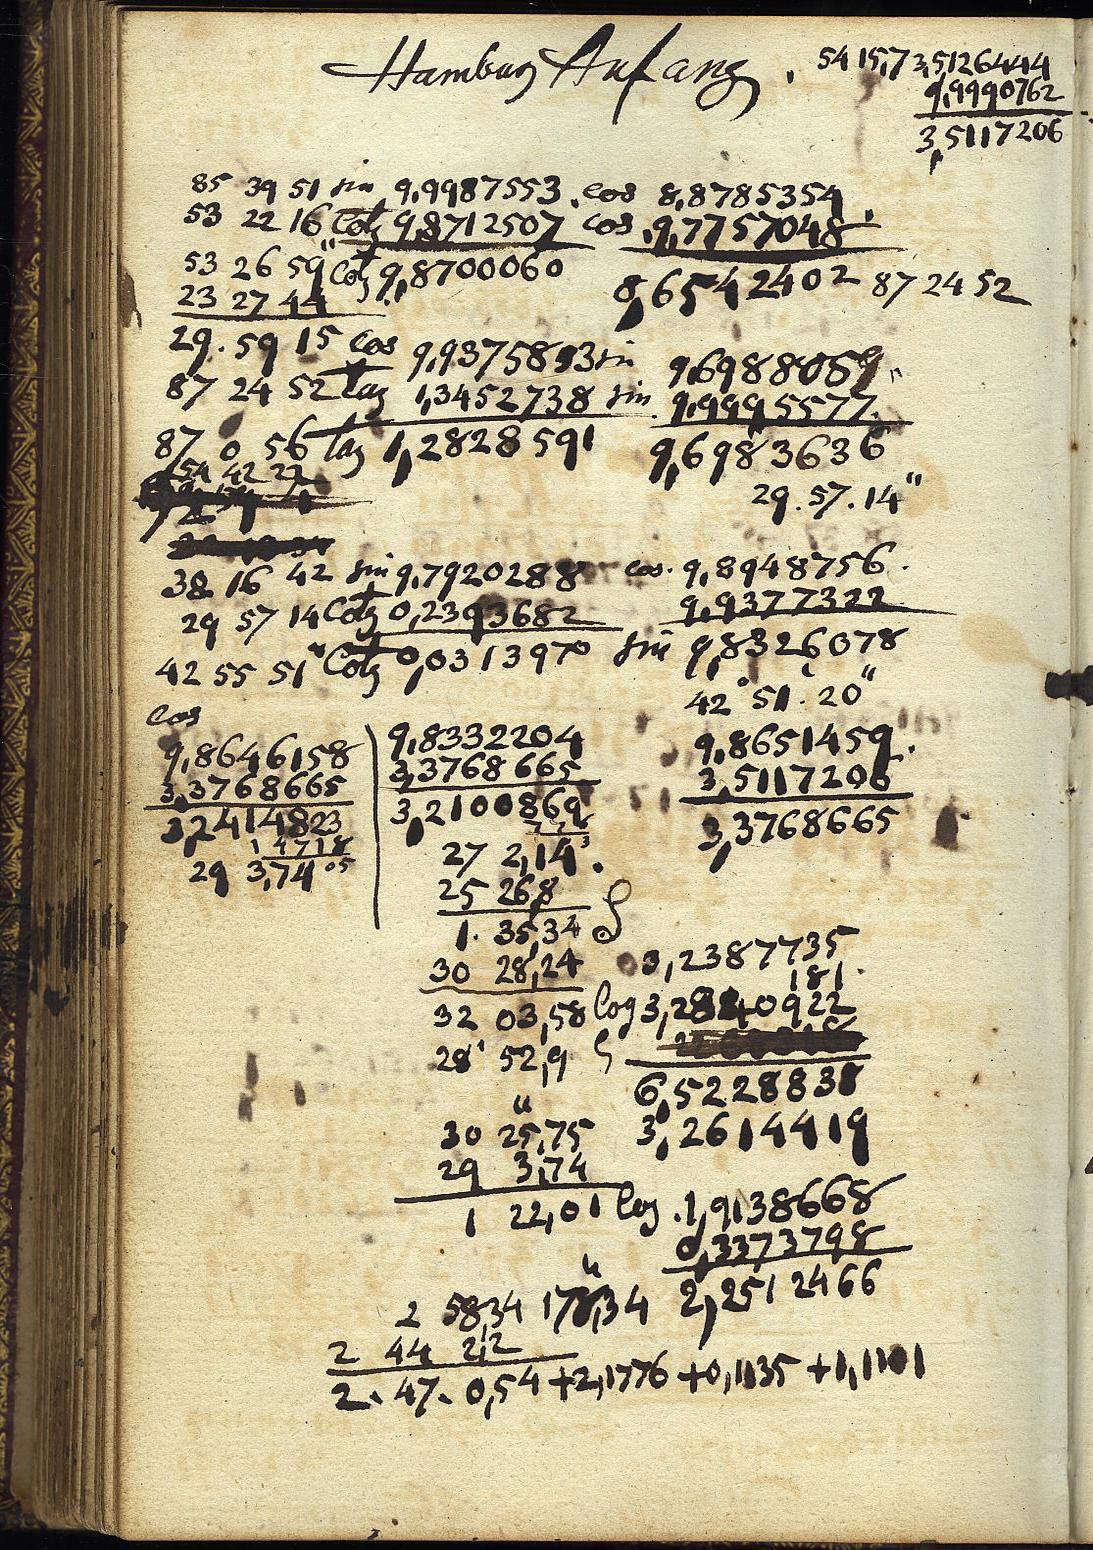 Hamburg Anfang. 54 15,7 3,5126444
9,9990762
3,5117206
85 39 51 sin 9,9987553. cos 8,8785354
53 22 16 Cotg 9,8712507 cos 9,7757048
53 26 59" Cotg 9,8700060
8,6542402 87 24 52
23 27 44
29. 59 15 cos 9,9375893 sin 9,6988059
87 24 52 tag 1,3452738 sin 9,9995577
87 0 56 tag 1,2828591 9,6983636
54 42 22
29. 57. 14"
38 16 42 sin 9,7920288 cos. 9,8948756.
29 57 14 Cotg 0,2393682 9,9377322
42 55 51" Cotg 0,0313970 sin 9,8326078
42° 51. 20"
cos
9,8646158 9,8332204 9,8651459.
3,3768665 3,3768665 3,5117206
3,2414823 3,2100869 3,3768665
14718
29 3,74 05 27 2,14.
25 26,8
1. 35,34 3,2387735
181.
30 28,24
32 03,58 log 3,2840922
28' 52,9
6,5228838
30 25,75 3,2614419
29 3,74
1 22,01 log. 1,9138668
0,3373798
2 58,34 178,34 2,2512466
2 44 2,2
2. 47. 0,54 +2,1776 +0,1135 +1,1101